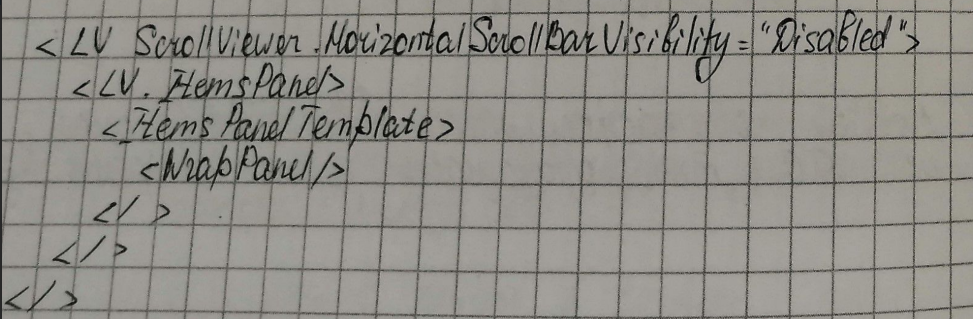 <LV ScrollViewer.HorizontalScrollBarVisibility="Disabled">
<LV.ItemsPanel>
<ItemsPanelTemplate>
<WrapPanel/>
</ >
</>
</>